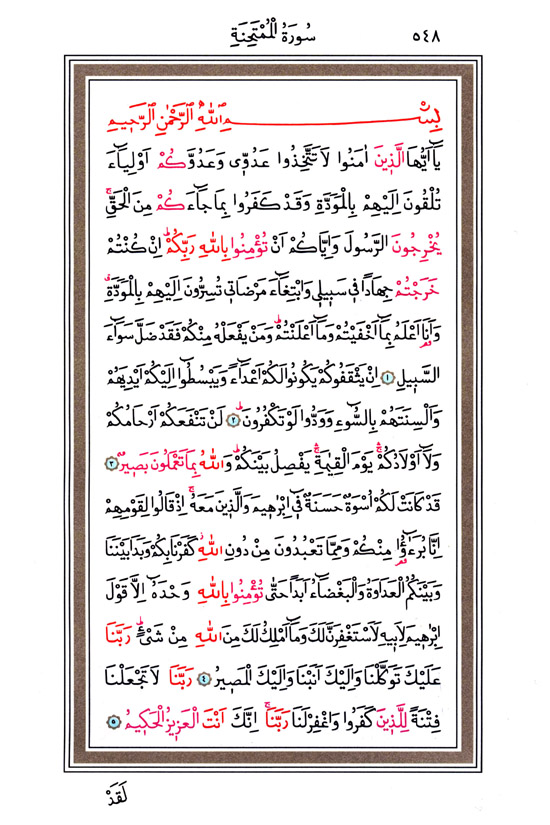 سُورَةُ الْمُمْتَحِنَةِ ٥٤٨
بِسْمِ اللّٰهِ الرَّحْمٰنِ الرَّحِيمِ
يَٓا اَيُّهَا الَّذِينَ اٰمَنُوا لَا تَتَّخِذُوا عَدُوّ۪ي وَعَدُوَّكُمْ اَوْلِيَٓاءَ
تُلْقُونَ اِلَيْهِمْ بِالْمَوَدَّةِ وَقَدْ كَفَرُوا بِمَا جَٓاءَكُمْ مِنَ الْحَقِّۚ
يُخْرِجُونَ الرَّسُولَ وَاِيَّاكُمْ اَنْ تُؤْمِنُوا بِاللّٰهِ رَبِّكُمْۜ اِنْ كُنْتُمْ
خَرَجْتُمْ جِهَادًا ف۪ي سَب۪يل۪ي وَابْتِغَٓاءَ مَرْضَات۪ي تُسِرُّونَ اِلَيْهِمْ بِالْمَوَدَّةِۗ
وَاَنَا۬ اَعْلَمُ بِمَٓا اَخْفَيْتُمْ وَمَٓا اَعْلَنْتُمْۜ وَمَنْ يَفْعَلْهُ مِنْكُمْ فَقَدْ ضَلَّ سَوَٓاءَ
السَّب۪يلِ ١ اِنْ يَثْقَفُوكُمْ يَكُونُوا لَكُمْ اَعْدَٓاءً وَيَبْسُطُٓوا اِلَيْكُمْ اَيْدِيَهُمْ
وَاَلْسِنَتَهُمْ بِالسُّٓوءِ وَوَدُّوا لَوْ تَكْفُرُونَۜ ٢ لَنْ تَنْفَعَكُمْ اَرْحَامُكُمْ
وَلَٓا اَوْلَادُكُمْۚ يَوْمَ الْقِيٰمَةِۚ يَفْصِلُ بَيْنَكُمْۜ وَاللّٰهُ بِمَا تَعْمَلُونَ بَص۪يرٌ ٣
قَدْ كَانَتْ لَكُمْ اُسْوَةٌ حَسَنَةٌ ف۪ٓي اِبْرٰه۪يمَ وَالَّذ۪ينَ مَعَهُۚ اِذْ قَالُوا لِقَوْمِهِمْ
اِنَّا بُرَءٰٓؤُ۬ا مِنْكُمْ وَمِمَّا تَعْبُدُونَ مِنْ دُونِ اللّٰهِۘ كَفَرْنَا بِكُمْ وَبَدَا بَيْنَنَا
وَبَيْنَكُمُ الْعَدَاوَةُ وَالْبَغْضَٓاءُ اَبَدًا حَتّٰى تُؤْمِنُوا بِاللّٰهِ وَحْدَهُٓ اِلَّا قَوْلَ
اِبْرٰه۪يمَ لِاَب۪يهِ لَاَسْتَغْفِرَنَّ لَكَ وَمَٓا اَمْلِكُ لَكَ مِنَ اللّٰهِ مِنْ شَيْءٍۜ رَبَّنَا
عَلَيْكَ تَوَكَّلْنَا وَاِلَيْكَ اَنَبْنَا وَاِلَيْكَ الْمَص۪يرُ ٤ رَبَّنَا لَا تَجْعَلْنَا
فِتْنَةً لِلَّذ۪ينَ كَفَرُوا وَاغْفِرْ لَنَا رَبَّنَاۚ اِنَّكَ اَنْتَ الْعَز۪يزُ الْحَك۪يمُ ٥
لَقَدْ